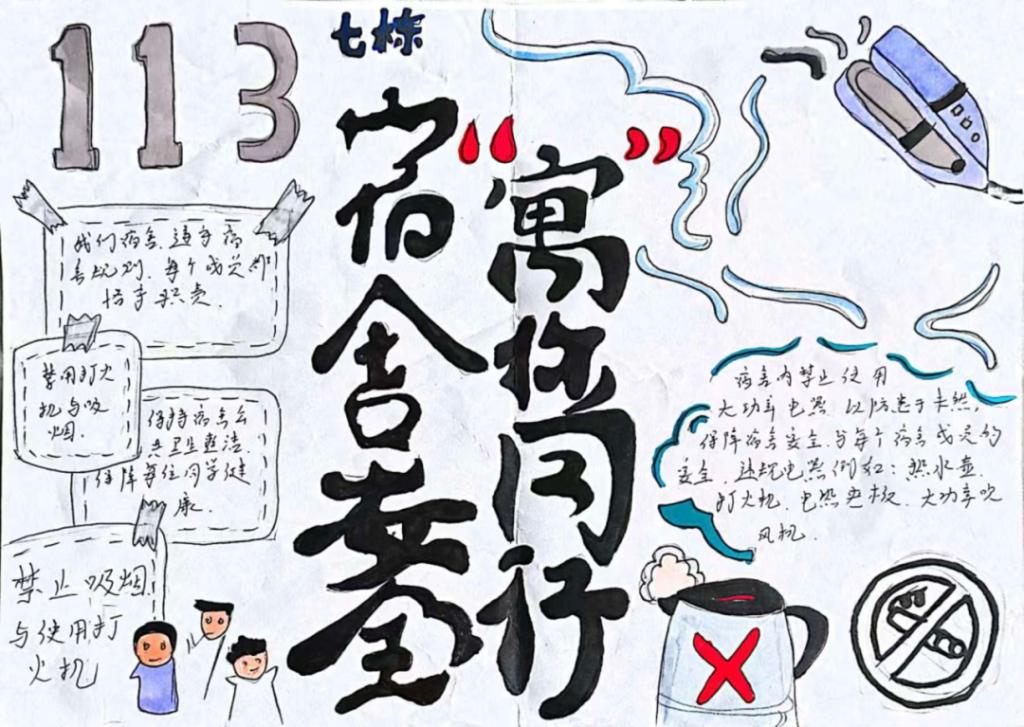 113
七栋
宿舍安全
“寓”你同行
我们宿舍遵守宿
舍规则.每个成员都
恪守职责.
禁用打火
机与吸
烟.
保持宿舍公
共卫生整洁
保障每位同学健
康.
禁止吸烟
与使用打
火机
宿舍内禁止使用
大功率电器以防患于未然,
保障宿舍安全与每个宿舍成员的
安全.违规电器例如:热水壶.
打火机.电热夹板.大功率吹
风机.